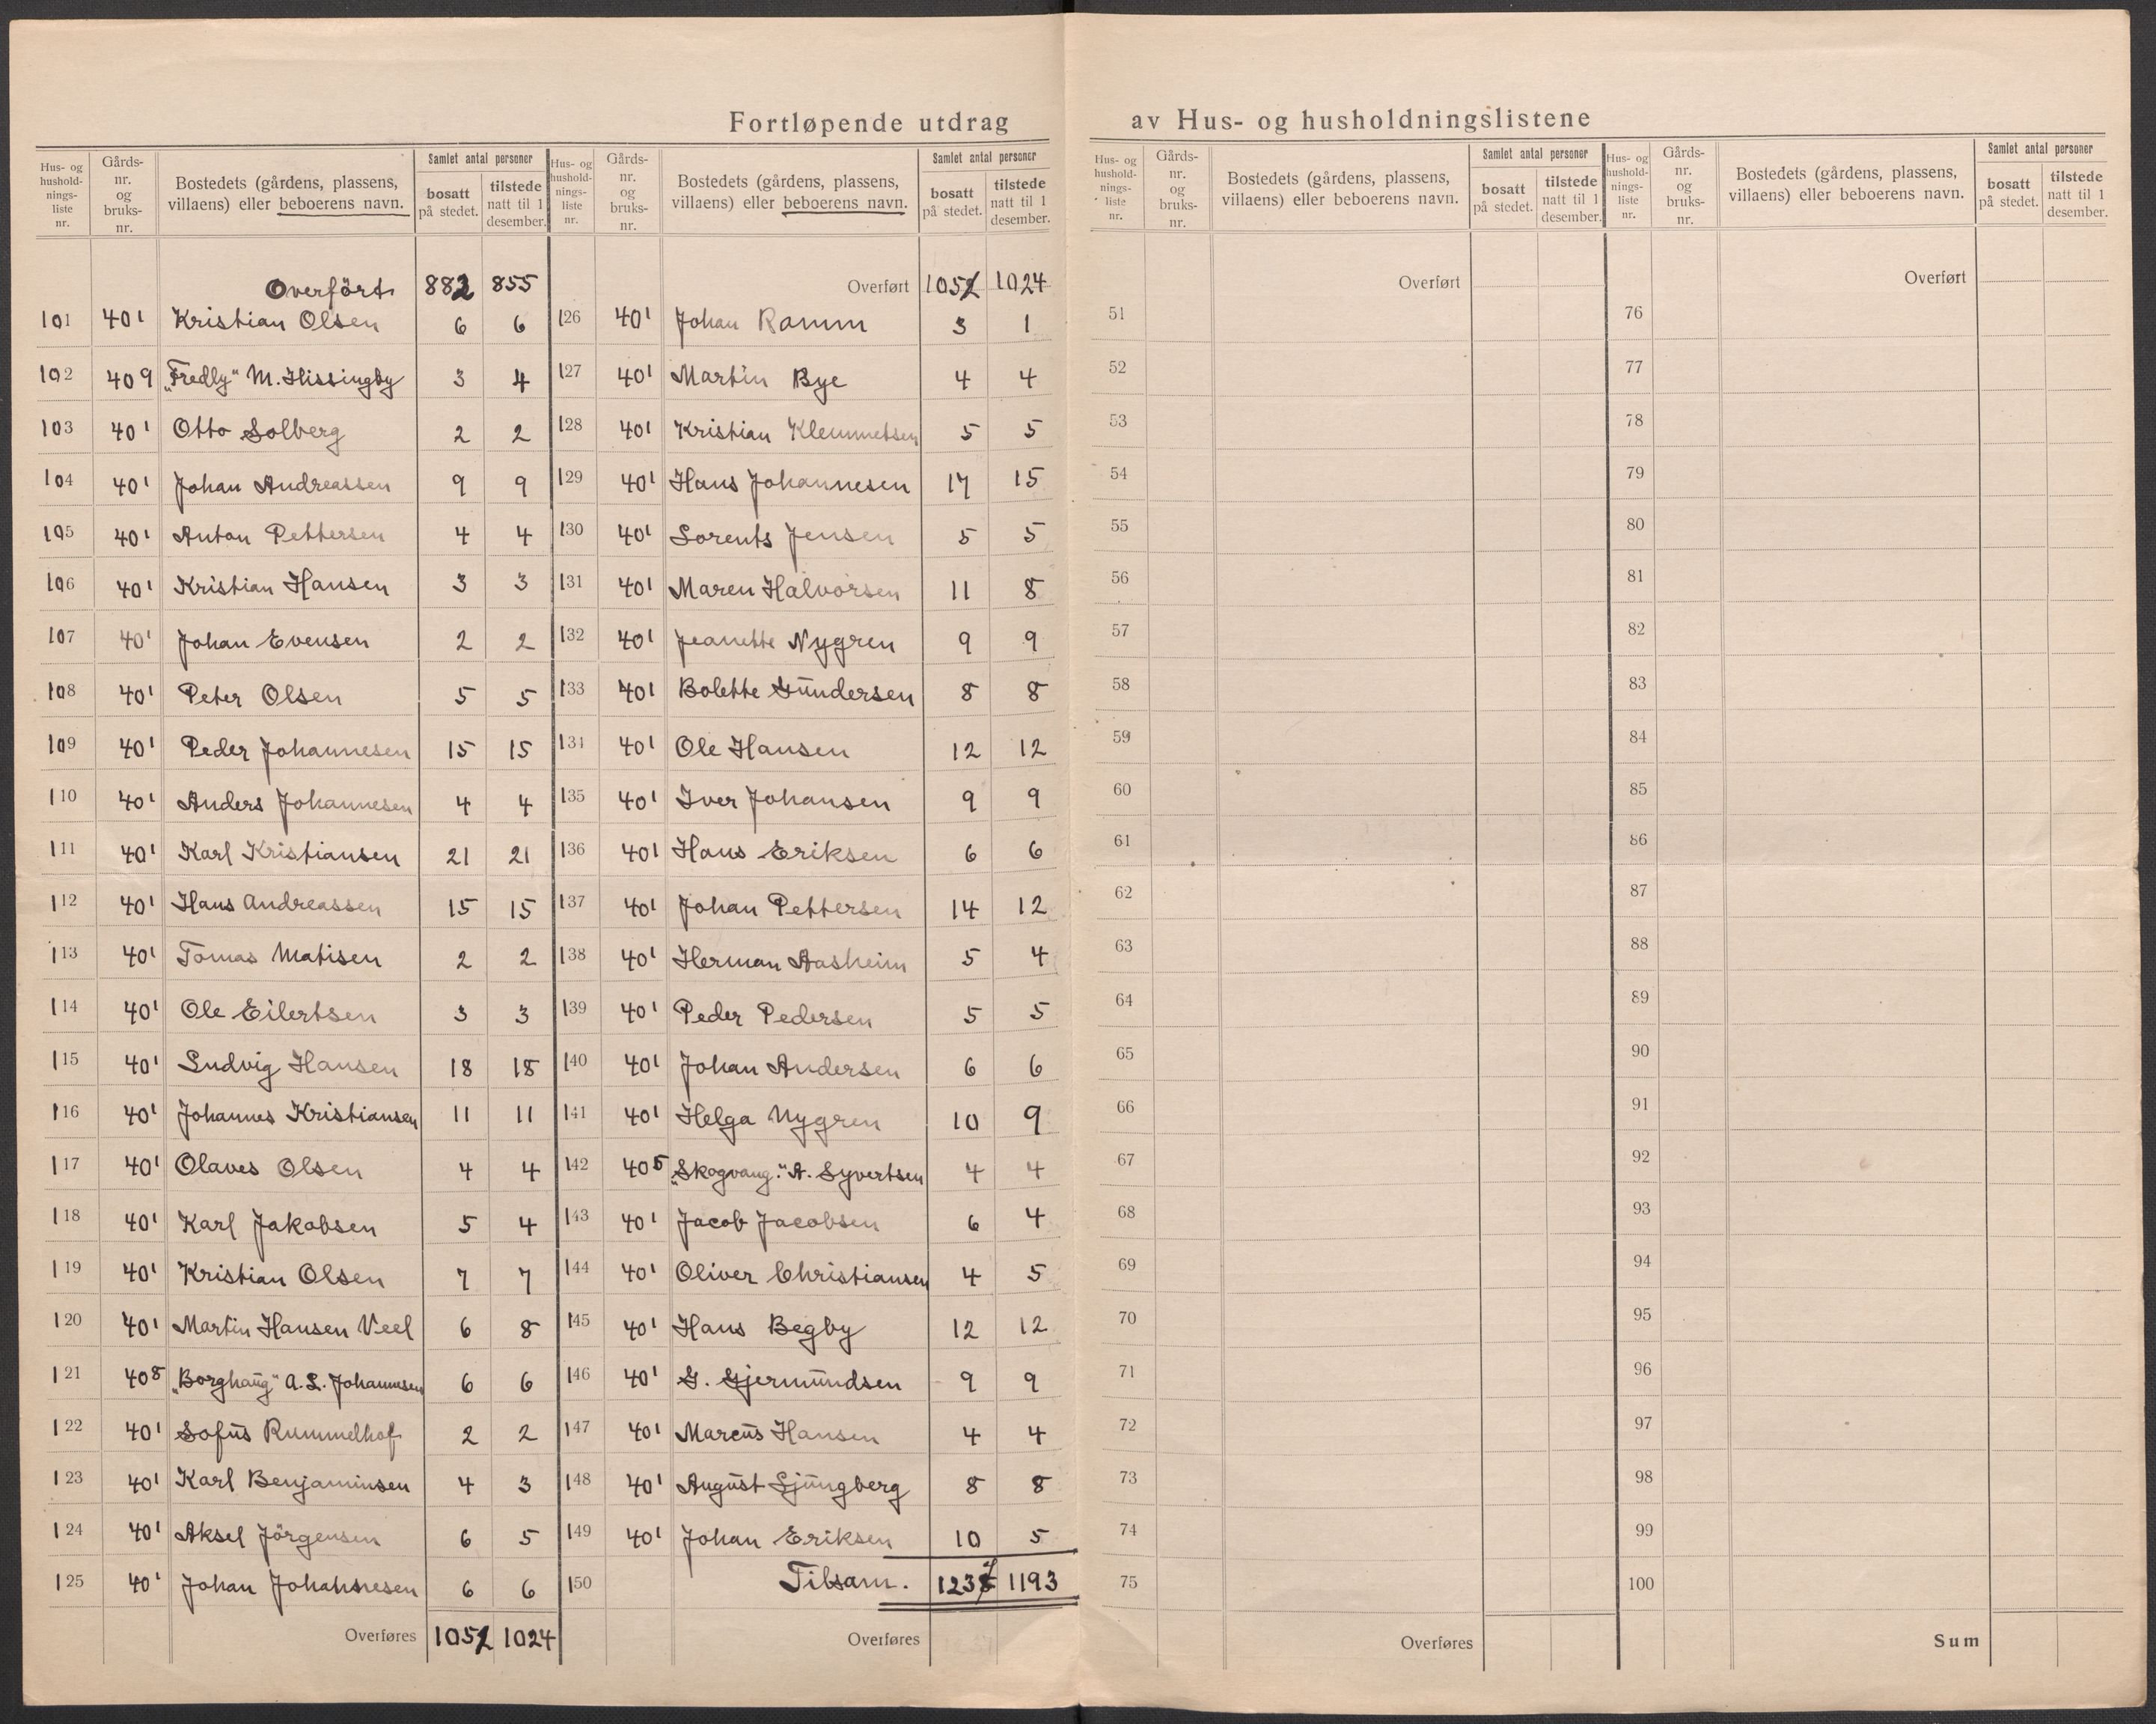 Fortløpende utdrag av Hus- og husholdningslistene
Hus- og hushold- nings- liste nr. Gårds- nr. og bruks- nr. Bostedets (gårdens, plassens, villaens) eller beboerens navn. Samlet antal personer bosatt på stedet. tilstede natt til 1 desember.
Overført 882 855
101 40 1 Kristian Olsen 6 6
102 40 9 „Fredly" M. Hissingby 3 4
103 40 1 Otto Solberg 2 2
104 40 1 Johan Andreassen 9 9
105 40 1 Anton Pettersen 4 4
106 40 1 Kristian Hansen 3 3
107 40 1 Johan Evensen 2 2
108 40 1 Peter Olsen 5 5
109 40 1 Peder Johannesen 15 15
110 40 1 Anders Johannesen 4 4
111 40 1 Karl Kristiansen 21 21
112 40 1 Hans Andreassen 15 15
113 40 1 Tomas Matisen 2 2
114 40 1 Ole Eilertsen 3 3
115 40 1 Ludvig Hansen 18 18
116 40 1 Johannes Kristiansen 11 11
117 40 1 Olaves Olsen 4 4
118 40 1 Karl Jakobsen 5 4
119 40 1 Kristian Olsen 7 7
120 40 1 Martin Hansen Veel 6 8
121 40 8 „Borghaug" A. L. Johannesen 6 6
122 40 1 Sofus Rummelhof 2 2
123 40 1 Karl Benjaminsen 4 3
124 40 1 Aksel Jörgensen 6 5
125 40 1 Johan Johannesen 6 6
Overføres 1051 1024
Hus- og hushold- nings- liste nr. Gårds- nr. og bruks- nr. Bostedets (gårdens, plassens, villaens) eller beboerens navn. Samlet antal personer bosatt på stedet. tilstede natt til 1 desember.
Overført 1051 1024
126 40 1 Johan Ramm 3 1
127 40 1 Martin Bye 4 4
128 40 1 Kristian Klemmetsen 5 5
129 40 1 Hans Johannesen 17 15
130 40 1 Lorents Jensen 5 5
131 40 1 Maren Halvorsen 11 8
132 40 1 Jeanette Nygren 9 9
133 40 1 Bolette Gundersen 8 8
134 40 1 Ole Hansen 12 12
135 40 1 Iver Johansen 9 9
136 40 1 Hans Eriksen 6 6
137 40 1 Johan Pettersen 14 12
138 40 1 Herman Aasheim 5 4
139 40 1 Peder Pedersen 5 5
140 40 1 Johan Andersen 6 6
141 40 1 Helga Nygren 10 9
142 40 5 „Skogvang." A. Syvertsen 4 4
143 40 1 Jacob Jacobsen 6 4
144 40 1 Oliver Christiansen 4 5
145 40 1 Hans Begby 12 12
146 40 1 G. Gjermundsen 9 9
147 40 1 Marcus Hansen 4 4
148 40 1 August Ljungberg 8 8
149 40 1 Johan Eriksen 10 5
150 Tilsam. 1237 1193
Overføres
Hus- og hushold- nings- liste nr. Gårds- nr. og bruks- nr. Bostedets (gårdens, plassens, villaens) eller beboerens navn. Samlet antal personer bosatt på stedet. tilstede natt til 1 desember.
Overført
51
52
53
54
55
56
57
58
59
60
61
62
63
64
65
66
67
68
69
70
71
72
73
74
75
Overføres
Hus- og hushold- nings- liste nr. Gårds- nr. og bruks- nr. Bostedets (gårdens, plassens, villaens) eller beboerens navn. Samlet antal personer bosatt på stedet. tilstede natt til 1 desember.
Overført
76
77
78
79
80
81
82
83
84
85
86
87
88
89
90
91
92
93
94
95
96
97
98
99
100
Sum